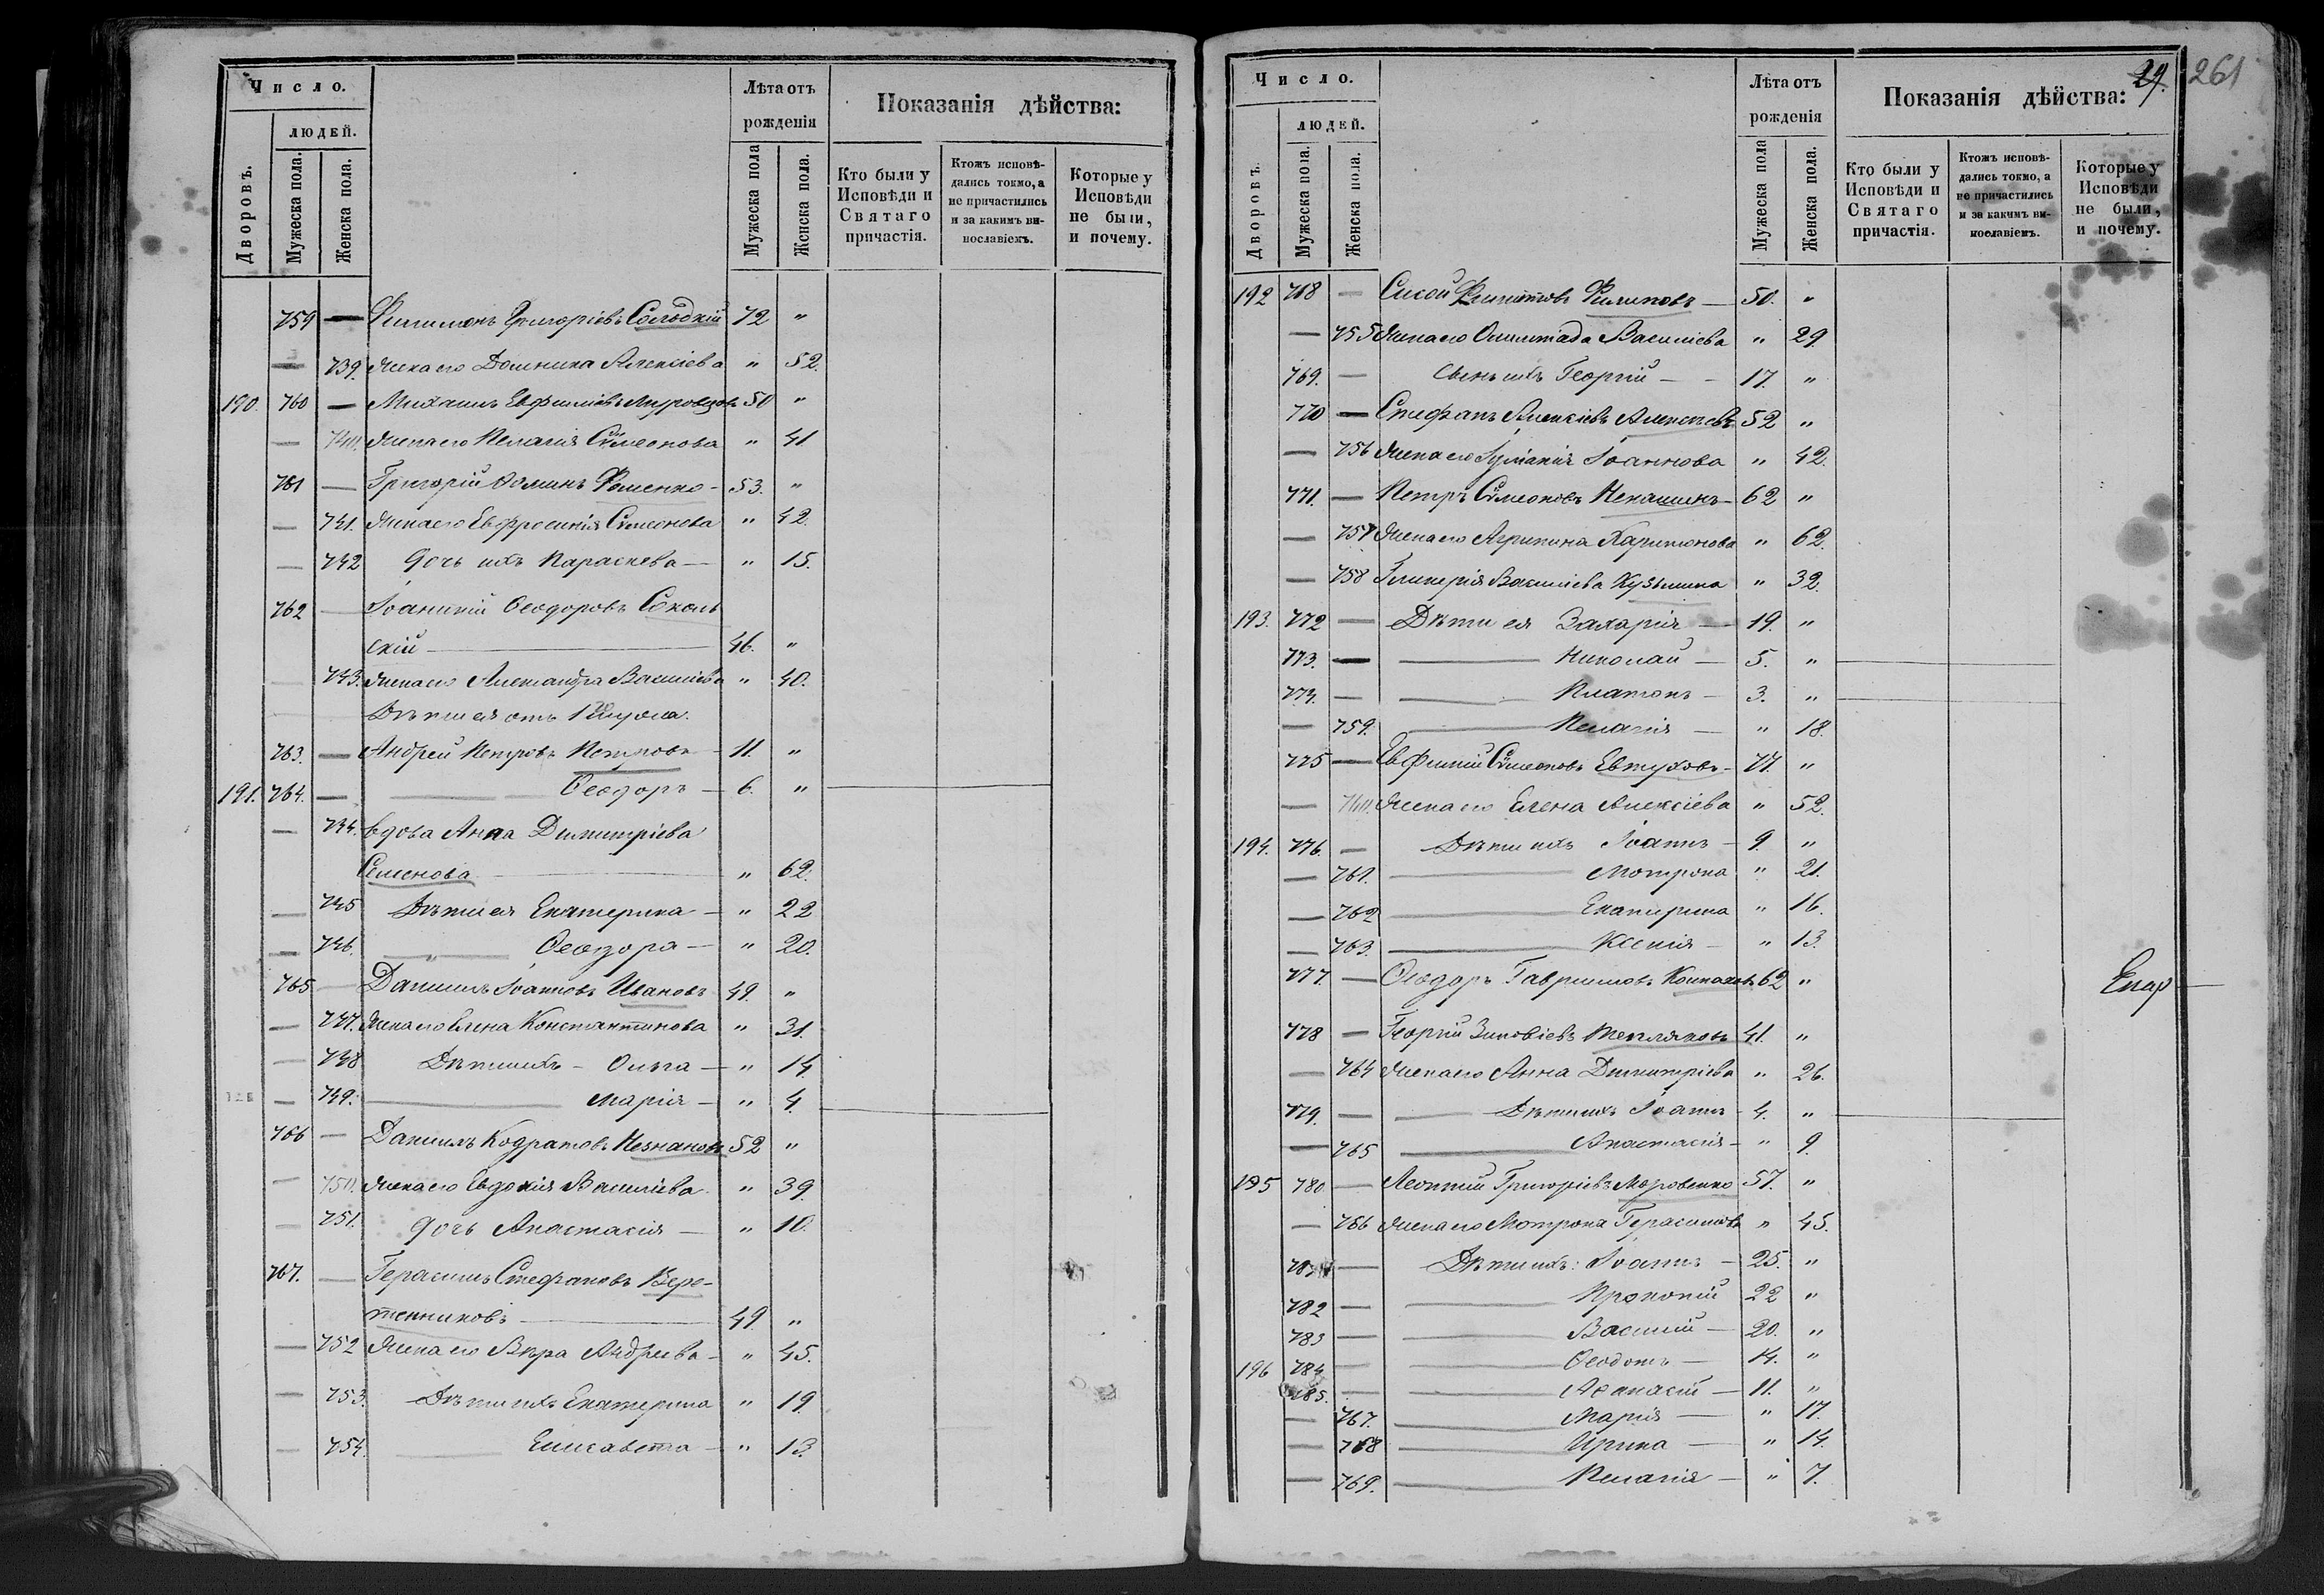 Число.
Лѣта отъ рожденія
Показанія дѣйства:
людей.
Дворовъ.
Мужеска пола.
Женска пола.
Мужеска пола
Женска пола.
Кто были у Исповѣди и Святаго причастія.
Ктожъ исповѣдались токмо, а не причастились и за какимъ винославіемъ.
Которые у Исповѣди не были, и почему.
759 — Филимонъ Григоріевъ Солодкій 72 "
— 739. Жена его Домника Алексіева " 52.
190. 760 — Михаилъ Евфиміевъ 50 "
— 740. Жена его Пелагія Сѵмеонова " 41
761 — Григорій Фоминъ Фоменко - 53. "
— 741. Жена его Евфросинія Сѵмеонова " 42.
— 742 Дочь ихъ Параскева — " 15.
762 — Іоанникій Ѳеодоровъ Соколь
скій — 46. "
743. Жена его Александра Василіева " 40.
Дѣти ея отъ
763. — Андрей Петровъ Петровъ - 11. "
191. 764. — — Ѳеодоръ — 6. "
— 744. Вдова Анна Димитріева
Семенова — " 62.
— 745 Дѣти ея Екатерина — " 22
— 746. — " — Ѳеодора — " 20.
765 — Даніилъ Іоанновъ Ивановъ 49. "
— 747. Жена его Елена Константинова " 31.
— 748 Дѣти ихъ - Ольга — " 14
— 749. — Марія — " 4.
766 — Даніилъ Кодратовъ Незнановъ 52 "
— 750. Жена его Евдокія Василіева " 39.
— 751. Дочь Анастасія — " 10.
767. — Герасимъ Стефановъ Вере-
тенниковъ — 49. "
— 752 Жена его Вѣра Андреева - " 45.
— 753. Дѣти ихъ Екатерина " 19.
— 754. — Елисавета - " 13.
29. 261
Число.
Лѣта отъ рожденія
Показанія дѣйства:
людей.
Дворовъ.
Мужеска пола.
Женска пола.
Мужеска пола
Женска пола.
Кто были у Исповѣди и Святаго причастія.
Ктожъ исповѣдались токмо, а не причастились и за какимъ винославіемъ.
Которые у Исповѣди не были, и почему.
192 768 — Сисой Филиповъ — 50. "
— 755 Жена его Олимпіада Василіева " 29.
769. — Сынъ ихъ Георгій — - 17. "
770 — Стефанъ Алексіевъ Алексѣевъ 52 "
— 756 Жена его Іуліанія Іоаннова " 42.
771. — Петръ Сѵмеоновъ Ненашинъ - 62 "
— 757 Жена его Агрипина Харитонова " 62.
— 758 Гликерія Василіева Кузьмина " 32.
193. 772 — Дѣти ея Захарія — 19. "
773. — — Николай — 5. "
774. — — Платонъ — 3. "
— 759. — Пелагія — " 18.
775 — Евфимій Сѵмеоновъ Евтуховъ - 77. "
— 760. Жена его Елена Алексіева " 52.
194. 776. — Дѣти ихъ Іоаннъ - 9. "
— 761. — Мотрона " 21.
— 762 — Екатерина " 16.
— 763. — Ксенія — " 13.
777. — Ѳеодоръ Гавриловъ 62 " Епар —
778 — Георгій Зиновіевъ Тепляковъ 41. "
— 764 Жена его Анна Димитріева " 26.
779. — — Дѣти ихъ Іоаннъ - 4. "
— 765 — Анастасія - " 9.
195 780 — Леонтій Григоріевъ Моровенко 57. "
— 766 Жена его Мотрона Герасимова " 45.
781 — Дѣти ихъ: Іоаннъ - 25. "
782 — — Прокопій 22 "
783 — — Василій — 20. "
196 784 — — Ѳеодотъ — 14. "
785. — — Аѳанасій — 11. "
— 767. — Марія — " 17.
— 768 — Ирина — " 14.
— 769. — Пелагія — " 7.